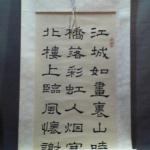 江城如畫裏山
橋落彩虹人烟寒
北樓上臨風懷謝